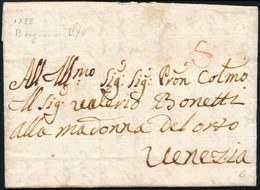 1788
S
All Illmo Sig: Sig: Pron Colmo
Il Sig: Valerio Bonetti
alla madonna del orto
Venezia
6